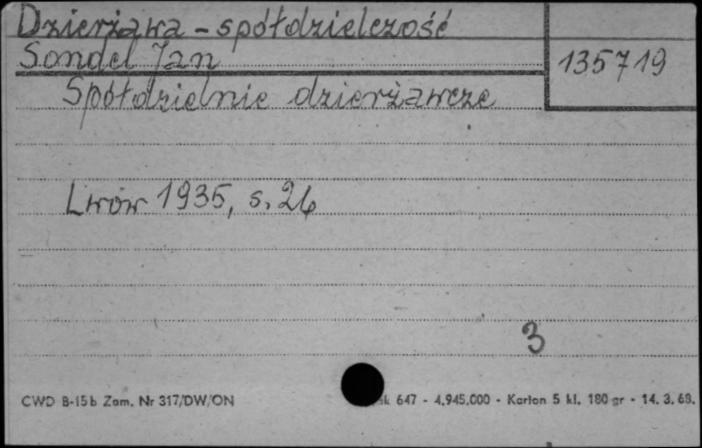 Dzierżawa - spółdzielczość
Sondel Jan
135719
Spółdzielnie dzierżawcze
Lwów 1935, s. 26
3
CWD B-15b Zam. Nr 317/DW/ON 647 - 4.945.000 - Karton 5 kl. 180 gr - 14. 3. 68.